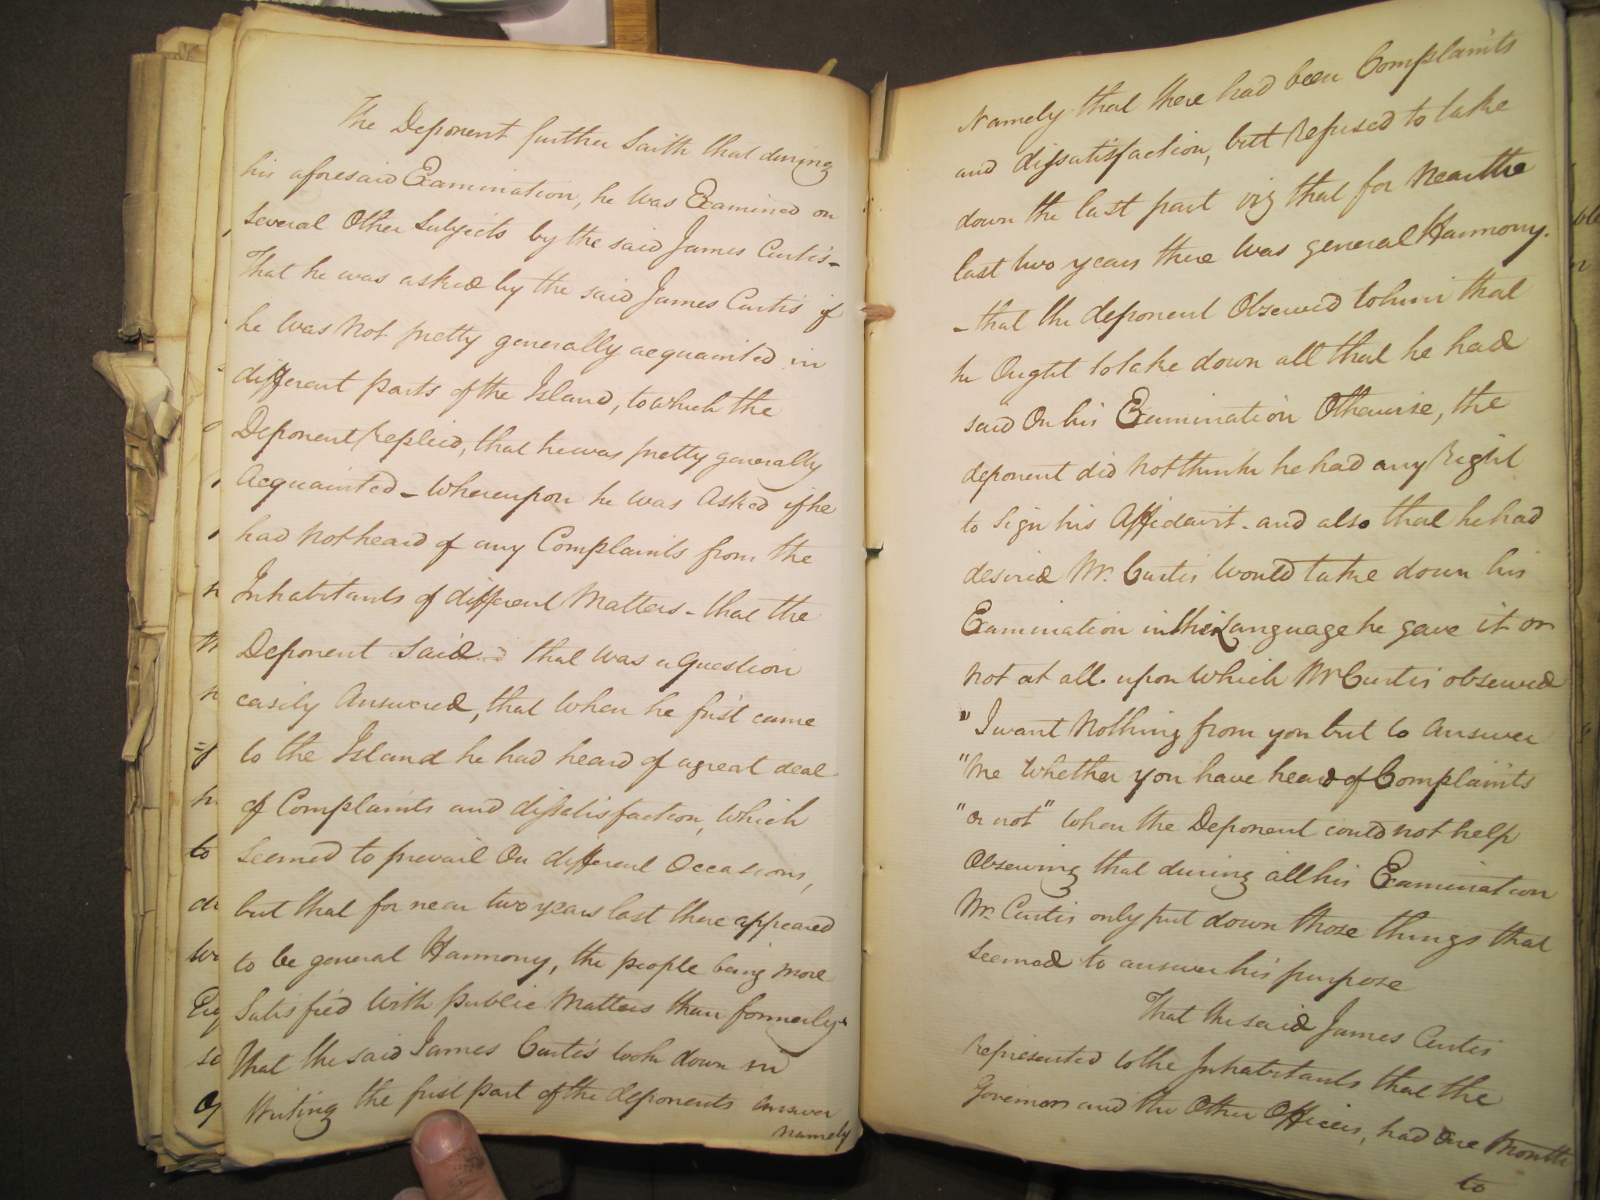 The Deponent further Saith that during
his aforesaid Examination, he was Examined on
several Other Subjects by the said James Curtis -
That he was asked by the said James Curtis if
he was not pretty generally acquainted in
different parts of the Island, to which the
Deponent Replied, that he was pretty generally
Acquainted - Whereupon he was Asked if he
had not heard of any Complaints from the
Inhabitants of different Matters - that the
Deponent said that was a question
easily Answered, that when he first came
to the Island he had heard of a great deal
of Complaints and dissatisfaction, which
Seemed to prevail On different Occasions,
but that for near two years last there appeared
to be general Harmony, the people being more
Satisfied with public Matters than formerly.
That the said James Curtis took down in
Writing the first part of the deponents answer
namely
Namely that there had been Complaints
and dissatisfaction, but Refused to take
down the last part viz that for near the
last two years there was general Harmony.
- that the deponent Observed to him that
he Ought to take down all that he had
said On his Examination Otherwise, the
deponent did not think he had any Right
to Sign his Affidavit - and also that he had
desired Mr. Curtis would take down his
Examination in the Language he gave it or
not at all. upon which Mr Curtis observed
" I want Nothing from you but to answer
" me whether you have heard of Complaints
" or not" when the Deponent could not help
Observing that during all his Examination
Mr. Curtis only put down those things that
seemed to answer his purpose
That the said James Curtis
represented to the Inhabitants that the
Governors and the Other Officers, had One Month
to